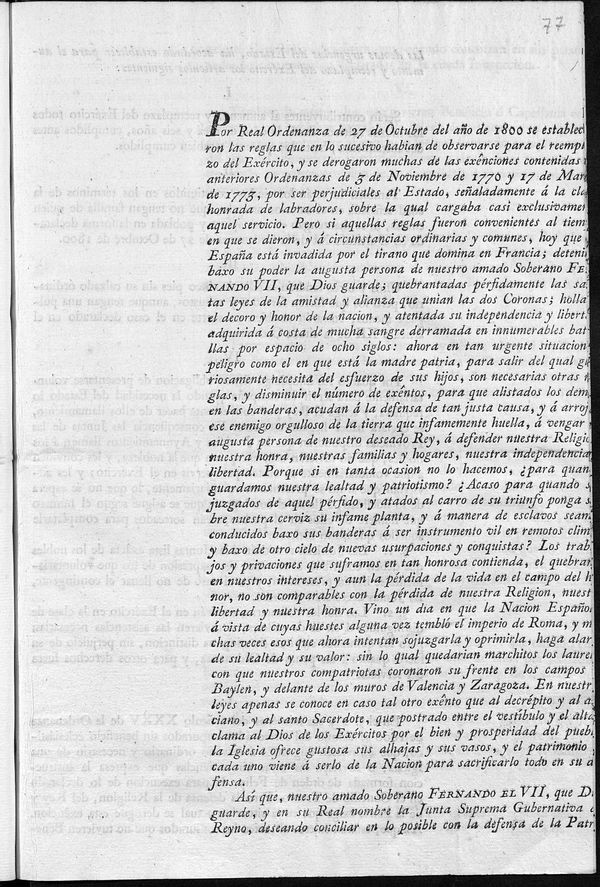 77
Por Real Ordenanza de 27 de Octubre del año de 1800 se establecie
ron las reglas que en lo sucesivo habian de observarse para el reempla
zo del Exército, y se derogaron muchas de las exênciones contenidas
anteriores Ordenanzas de 3 de Noviembre de 1770 y 17 de Mar
de 1773, por ser perjudiciales al Estado, señaladamente á la cla
honrada de labradores, sobre la qual cargaba casi exclusivamen
aquel servicio. Pero si aquellas reglas fueron convenientes al tiem
en que se dieron, y á circunstancias ordinarias y comunes, hoy que
España está invadida por el tirano que domina en Francia; deteni
baxo su poder la augusta persona de nuestro amado Soberano FER
NANDO VII, que Dios guarde; quebrantadas pérfidamente las san
tas leyes de la amistad y alianza que unian las dos Coronas; holla
el decoro y honor de la nacion, y atentada su independencia y libert
adquirida á costa de mucha sangre derramada en innumerables bat
llas por espacio de ocho siglos: ahora en tan urgente situacion
peligro como el en que está la madre patria, para salir del qual g
riosamente necesita del esfuerzo de sus hijos, son necesarias otras
glas, y disminuir el número de exêntos, para que alistados los dem
en las banderas, acudan á la defensa de tan justa causa, y á arroj
ese enemigo orgulloso de la tierra que infamemente huella, á vengar
augusta persona de nuestro deseado Rey, á defender nuestra Religio
nuestra honra, nuestras familias y hogares, nuestra independencia
libertad. Porque si en tanta ocasion no lo hacemos, ¿para quan
guardamos nuestra lealtad y patriotismo? ¿Acaso para quando s
juzgados de aquel pérfido, y atados al carro de su triunfo ponga s
bre nuestra cerviz su infame planta, y á manera de esclavos seam
conducidos baxo sus banderas á ser instrumento vil en remotos clim
y baxo de otro cielo de nuevas usurpaciones y conquistas? Los trab
jos y privaciones que suframos en tan honrosa contienda, el quebran
en nuestros intereses, y aun la pérdida de la vida en el campo del h
nor, no son comparables con la pérdida de nuestra Religion, nuest
libertad y nuestra honra. Vino un dia en que la Nacion Español
á vista de cuyas huestes alguna vez tembló el imperio de Roma, y m
chas veces esos que ahora intentan sojuzgarla y oprimirla, haga alar
de su lealtad y su valor: sin lo qual quedarian marchitos los laure
con que nuestros compatriotas coronaron su frente en los campos
Baylen, y delante de los muros de Valencia y Zaragoza. En nuestr
leyes apenas se conoce en caso tal otro exênto que al decrépito y al a
ciano, y al santo Sacerdote, que postrado entre el vestíbulo y el alta
clama al Dios de los Exércitos por el bien y prosperidad del puebl
la Iglesia ofrece gustosa sus alhajas y sus vasos, y el patrimonio
cada uno viene á serlo de la Nacion para sacrificarlo todo en su d
fensa.
Así que, nuestro amado Soberano FERNANDO EL VII, que Di
guarde, y en su Real nombre la Junta Suprema Gubernativa
Reyno, deseando conciliar en lo posible con la defensa de la Patr